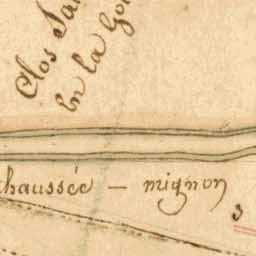 Clos
En la
chaussée — mignon
3